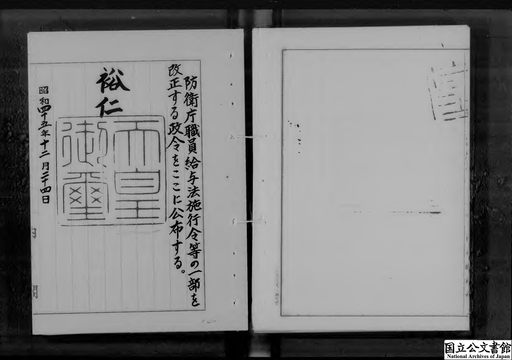 防衛庁職員給与法施行令等の一部を
改正する政令をここに公布する。
裕仁
天皇
御璽
昭和四十五年十二月二十四日
国立公文書館
National Archives of Japan